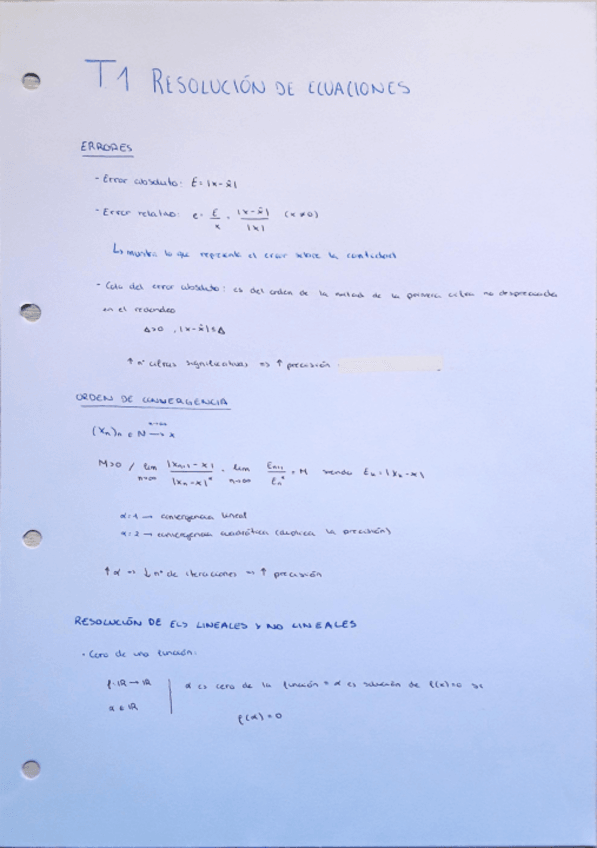 T1 RESOLUCIÓN DE ECUACIONES
ERRORES
- Error absoluto: E = |x - x̂|
- Error relativo: e = E/x = |x - x̂|/|x| (x ≠ 0)
↳ muestra lo que representa el error sobre la cantidad
- Cota del error absoluto: es del orden de la mitad de la primera cifra no despreciada
en el redondeo
Δ>0 , |x - x̂| ≤ Δ
↑ nº cifras significativas => ↑ precisión.
ORDEN DE CONVERGENCIA
(xₙ)ₙ ∈ N → x
n→∞
M>0 / lim n→∞ |xₙ₊₁ - x|/|xₙ - x|^α = lim n→∞ Eₙ₊₁/Eₙ^α = M siendo Eₖ = |xₖ - x|
α = 1 → convergencia lineal
α = 2 → convergencia cuadrática (duplica la precisión)
↑ α => ↓ nº de iteraciones => ↑ precisión
RESOLUCIÓN DE LINEALES Y NO LINEALES
- Cero de una función:
f: IR → IR | α es cero de la función = α es solución de f(x)=0 si
α ∈ IR | f(α) = 0